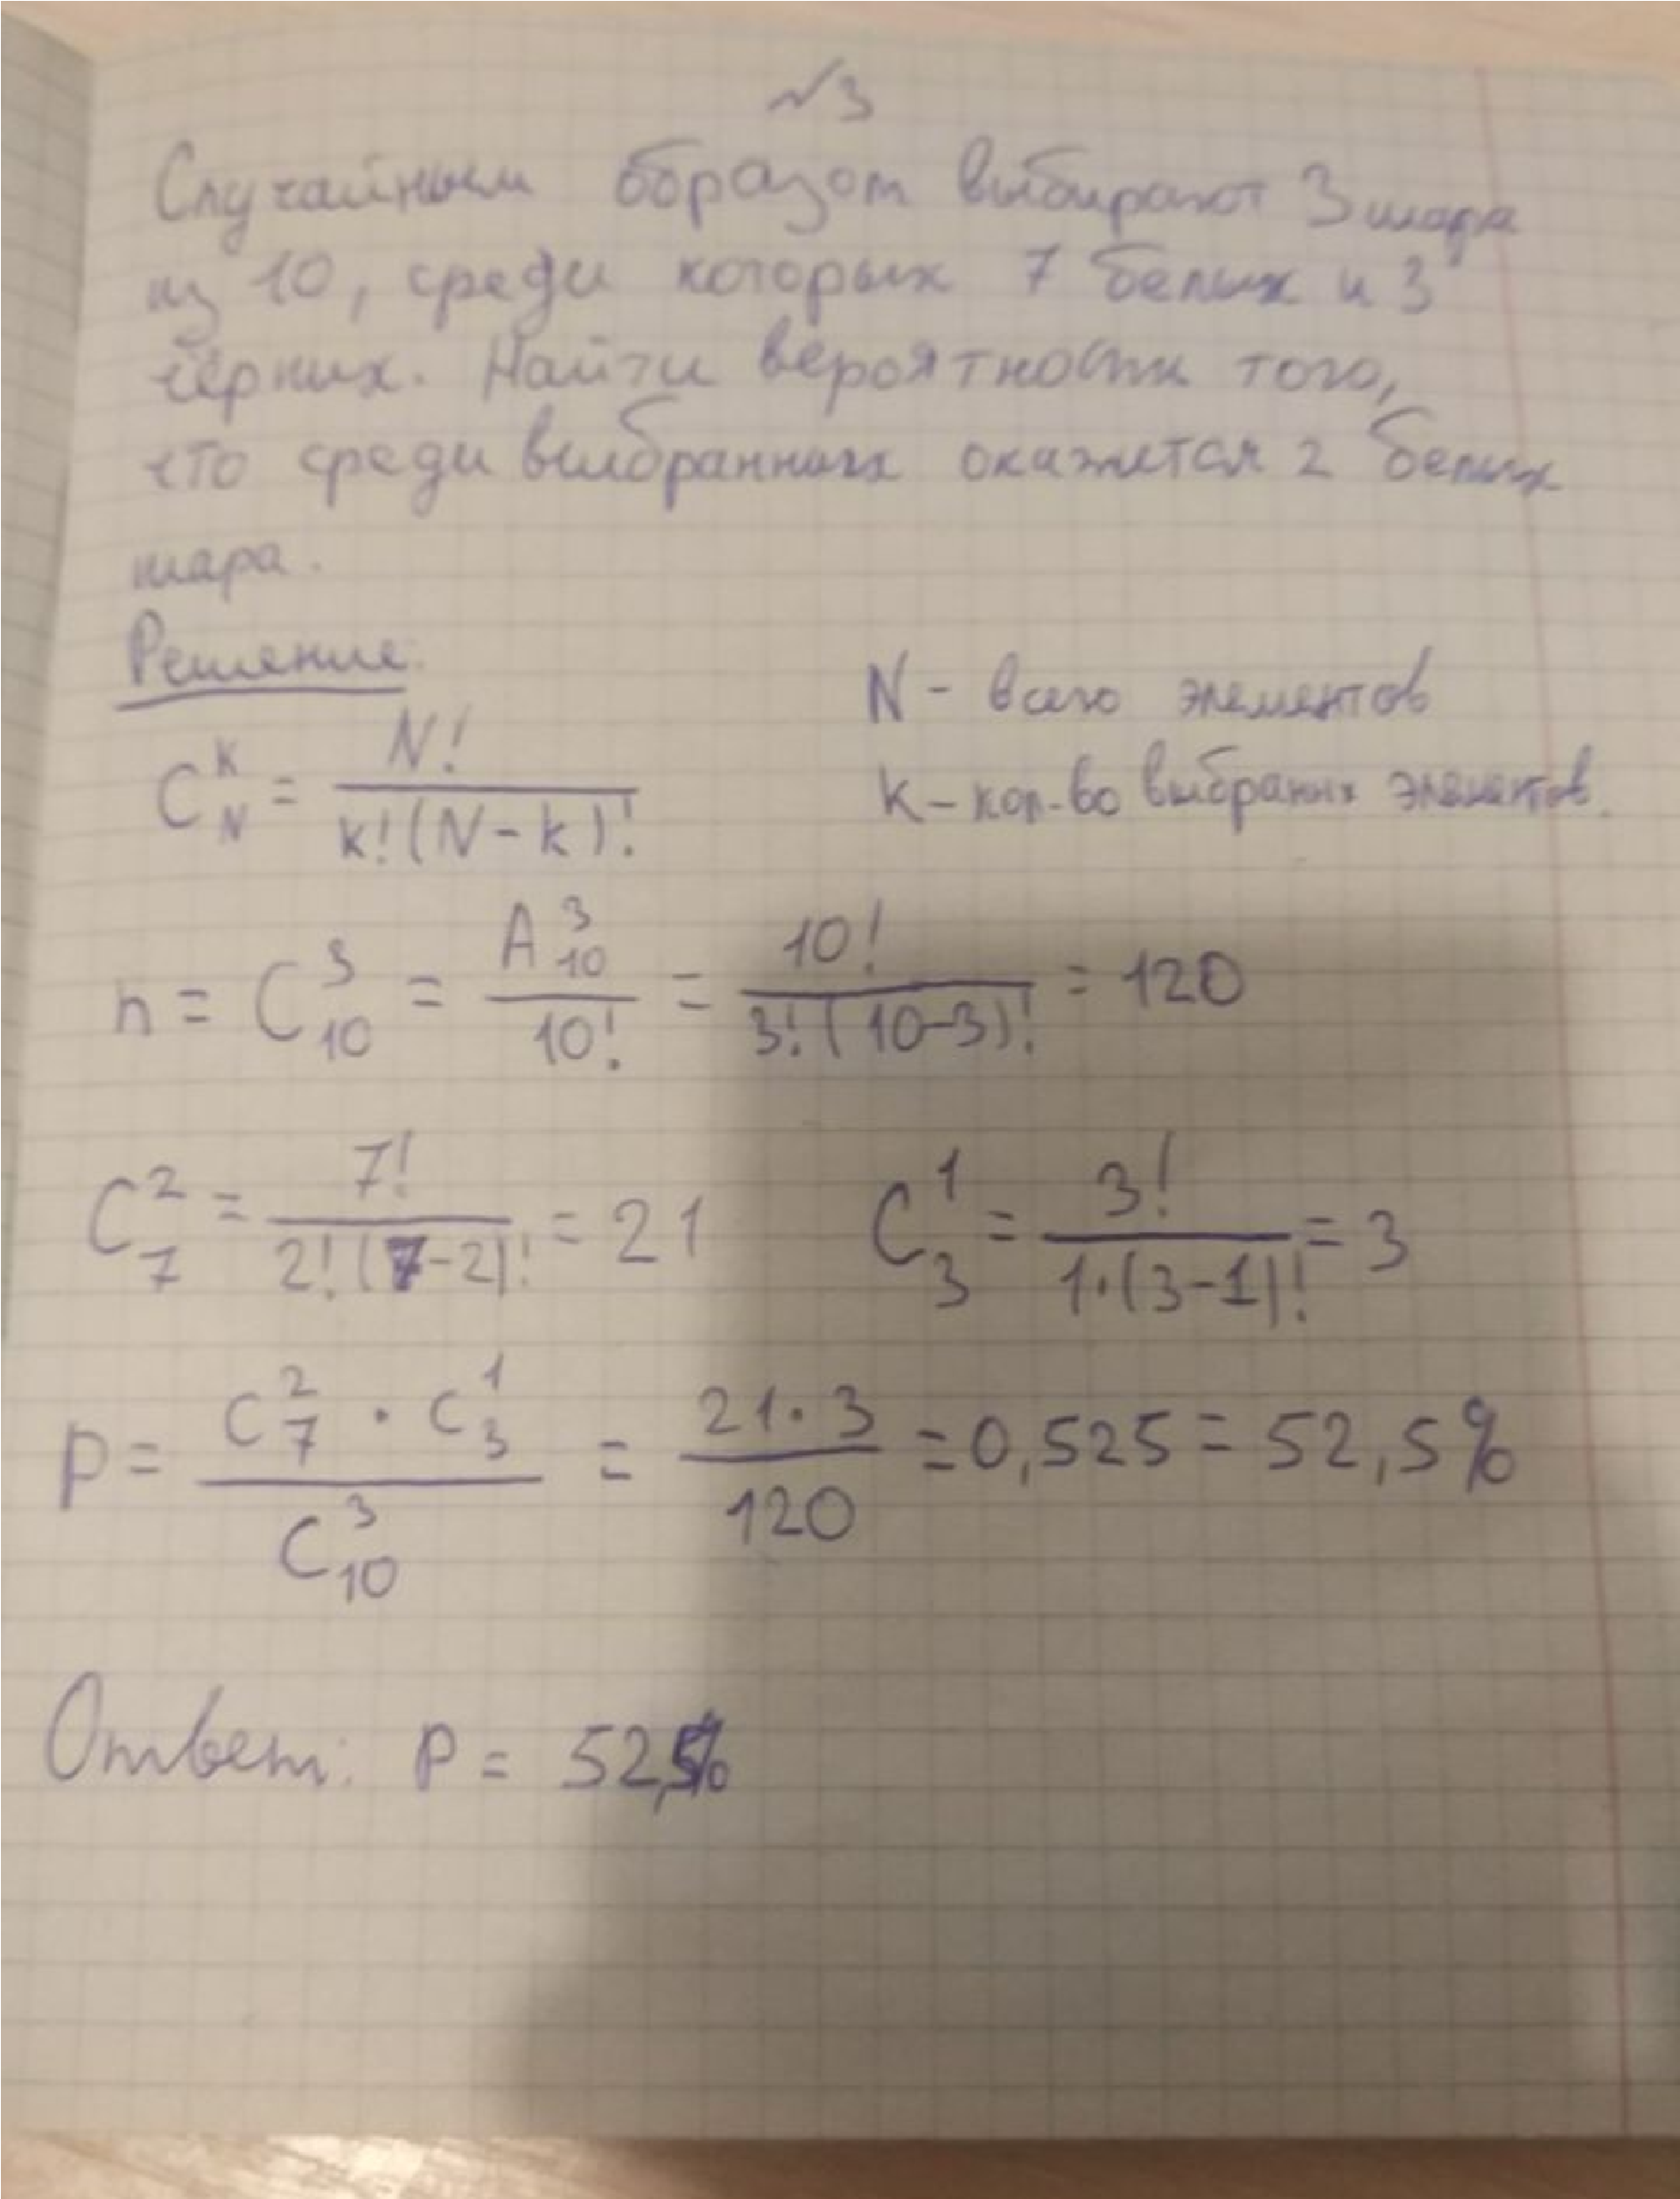 №3
Случайным образом выбирают 3 шара
из 10, среди которых 7 белых и 3
чёрных. Найти вероятность того,
что среди выбранных окажется 2 белых
шара.
Решение:
C_N^K = N! / k!(N-k)!
N - всего элементов
k - кол-во выбраных элементов.
n = C_10^3 = A_10^3 / 10! = 10! / 3!(10-3)! = 120
C_7^2 = 7! / 2!(7-2)! = 21   C_3^1 = 3! / 1·(3-1)! = 3
P = C_7^2 · C_3^1 / C_10^3 = 21·3 / 120 = 0,525 = 52,5%
Ответ: P = 52,5%